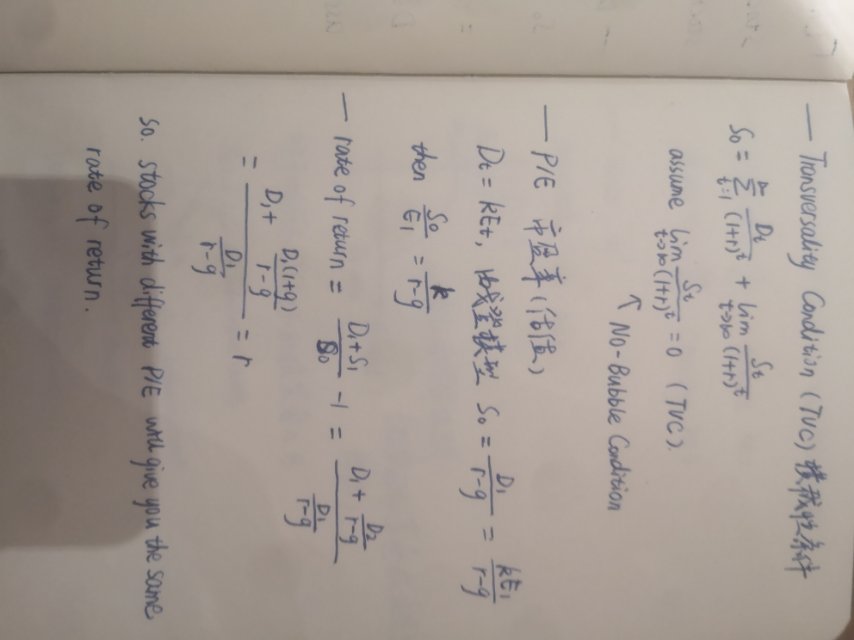 — Transversality Condition (TVC) 横截性条件
S₀ = ∑_{t=1}^{∞} D_t/(1+r)^t + lim_{t→∞} S_t/(1+r)^t
assume lim_{t→∞} S_t/(1+r)^t = 0 (TVC).
↑ No-Bubble Condition
— P/E 市盈率(估值)
D_t = kE_t, 由戈登模型 S₀ = D₁/(r-g) = kE₁/(r-g)
then S₀/E₁ = k/(r-g)
— rate of return = (D₁+S₁)/S₀ - 1 = (D₁ + D₂/(r-g))/(D₁/(r-g))
= (D₁ + D₁(1+g)/(r-g))/(D₁/(r-g)) = r
So. stocks with different P/E will give you the same
rate of return.